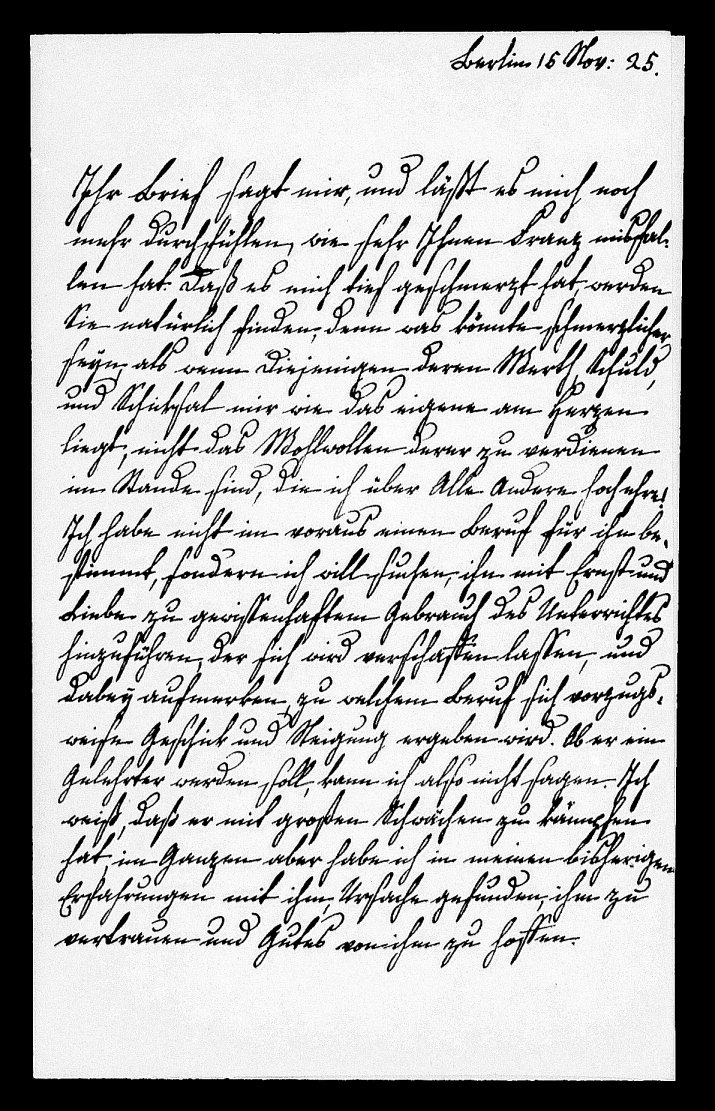 Berlin 15 Nov: 25.
Ihr Brief sagt mir, und läßt es mich noch
mehr durchfühlen, wie sehr Ihnen Franz misfal-
len hat. Daß es mich tief geschmerzt hat, werden
Sie natürlich finden, denn was könnte schmerzlicher
seyn, als wenn diejenigen deren Werth, Schuld,
und Schiksal mir wie das eigene am Herzen
liegt, nicht das Wohlwollen derer zu verdienen
im Stande sind, die ich über Alle Andere hochehre!
Ich habe nicht im voraus einen Beruf für ihn be-
stimmt, sondern ich will suchen, ihn mit Ernst und
Liebe zu gewissenhaftem Gebrauch des Unterrichtes
hinzuführen, der sich wird verschaffen lassen, und
dabey aufmerken, zu welchem Beruf sich vorzugs-
weise Geschik und Neigung ergeben wird. Ob er ein
Gelehrter werden soll, kann ich also nicht sagen. Ich
weiß, daß er mit großen Schwächen zu kämpfen
hat, im Ganzen aber habe ich in meinen bisherigen
Erfahrungen mit ihm, Ursache gefunden, ihm zu
vertrauen und Gutes von ihm zu hoffen.